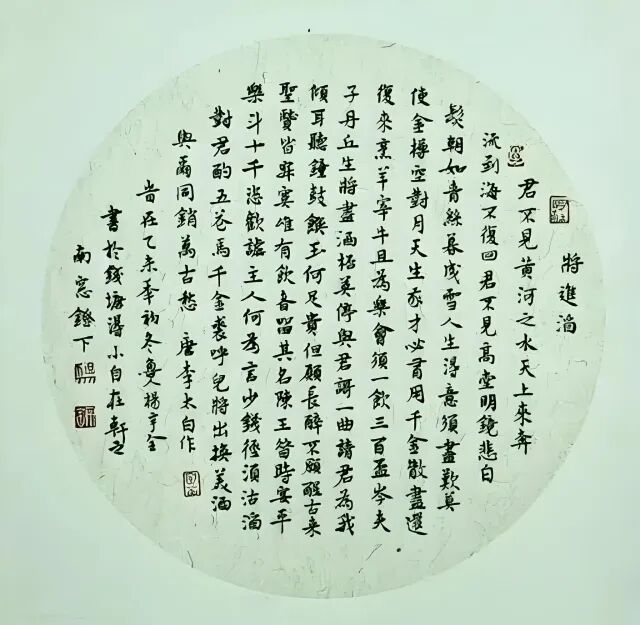 將進酒
君不見黃河之水天上來奔
流到海不復回君不見高堂明鏡悲白
髮朝如青絲暮成雪人生得意須盡歡莫
使金樽空對月天生我才必有用千金散盡還
復來烹羊宰牛且為樂會須一飲三百盃岑夫
子丹丘生將盡酒杯莫停與君謌一曲請君為我
傾耳聽鐘鼓饌玉何足貴但願長醉不願醒古來
聖賢皆寂寞雄有飲者留其名陳王昔時宴平
樂斗十千恣歡謔主人何為言少錢徑須沽酒
對君酌五花馬千金裘呼兒將出換美酒
與爾同銷萬古愁 唐李太白作
昔在乙未奉初冬粵人楊辛全
書於錢塘得小自在軒之
南窓鐙下